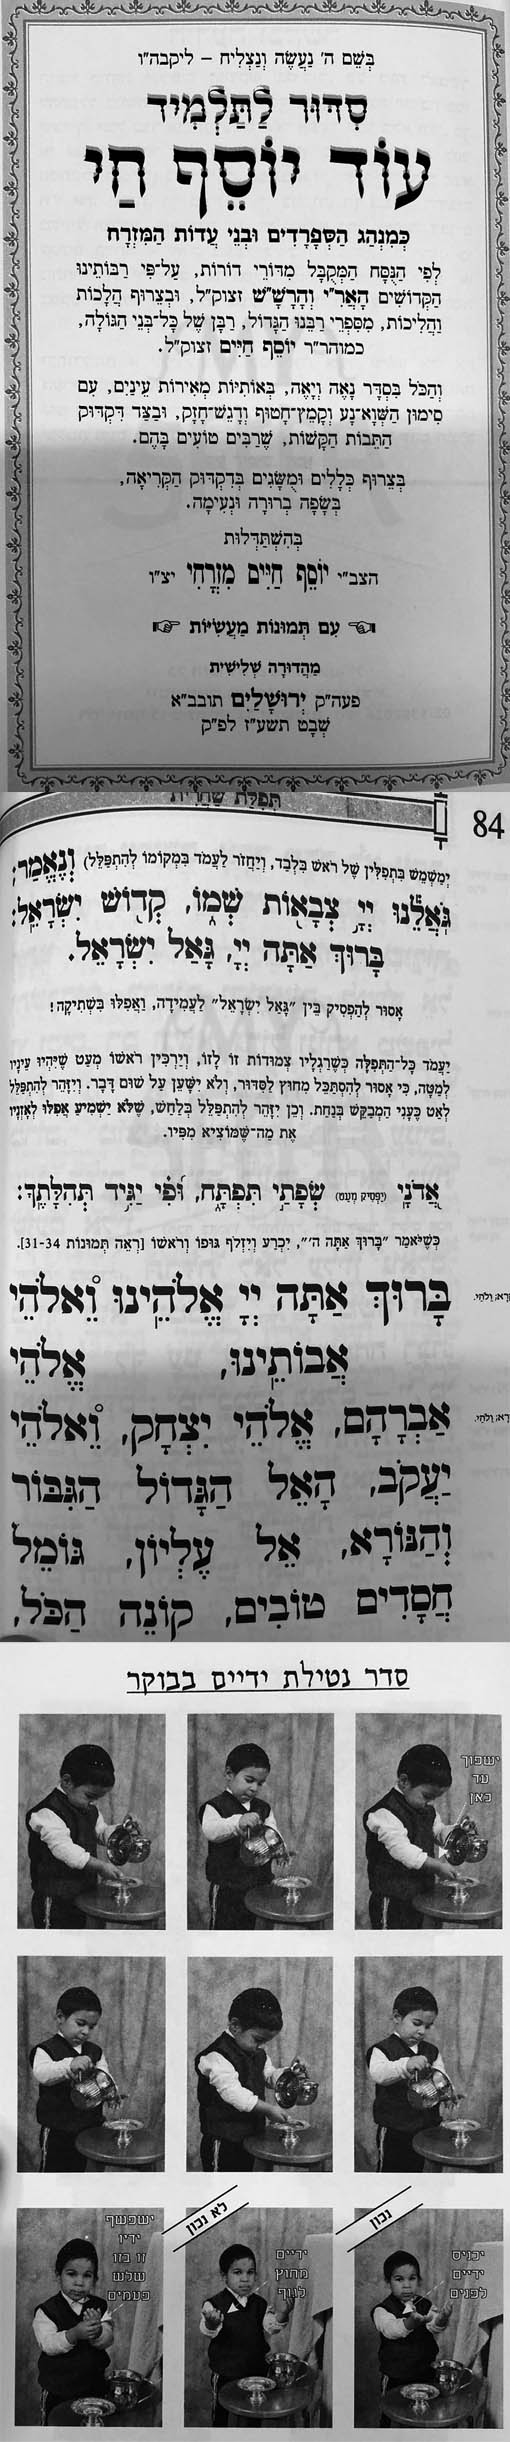 בְּשֵׁם ה' נַעֲשֶׂה וְנַצְלִיחַ – ליקבה"ו
סִדּוּר לַתַּלְמִיד
עוֹד יוֹסֵף חַי
כְּמִנְהַג הַסְּפָרַדִּים וּבְנֵי עֲדוֹת הַמִּזְרָח
לְפִי הַנֻּסָּח הַמְקֻבָּל מִדּוֹרֵי דוֹרוֹת, עַל־פִּי רַבּוֹתֵינוּ
הַקְּדוֹשִׁים הָאֲרִ"י וְהָרָשָׁ"שׁ זצוק"ל, וּבְצֵרוּף הֲלָכוֹת
וַהֲלִיכוֹת, מִסִּפְרֵי רַבֵּנוּ הַגָּדוֹל, רַבָּן שֶׁל כָּל־בְּנֵי הַגּוֹלָה,
כמוהר"ר יוֹסֵף חַיִּים זצוק"ל.
וְהַכֹּל בְּסֵדֶר נָאֶה וְיָאֶה, בְּאוֹתִיּוֹת מְאִירוֹת עֵינַיִם, עִם
סִימוּן הַשְּׁוָא־נָע וְקָמֵץ־חָטוּף וְדָגֵשׁ־חָזָק, וּבְצַד דִּקְדּוּק
הַתֵּבוֹת הַקָּשׁוֹת, שֶׁרַבִּים טוֹעִים בָּהֶם.
בְּצֵרוּף כְּלָלִים וּמֻשָּׂגִים בְּדִקְדּוּק הַקְּרִיאָה,
בְּשָׂפָה בְרוּרָה וּנְעִימָה.
בְּהִשְׁתַּדְּלוּת
הצב"י יוֹסֵף חַיִּים מִזְרָחִי יצ"ו
עִם תְּמוּנוֹת מַעֲשִׂיּוֹת
מַהֲדוּרָה שְׁלִישִׁית
פעה"ק יְרוּשָׁלַיִם תובב"א
שְׁבָט תשע"ז לפ"ק
תְּפִלַּת שַׁחֲרִית
84
יְמַשְׁמֵשׁ בִּתְפִלִּין שֶׁל רֹאשׁ בִּלְבַד, וְיַחֲזוֹר לַעֲמֹד בִּמְקוֹמוֹ לְהִתְפַּלֵּל) וְנֶאֱמַר:
גֹּאֲלֵנוּ יְיָ צְבָאוֹת שְׁמוֹ, קְדוֹשׁ יִשְׂרָאֵל:
בָּרוּךְ אַתָּה יְיָ, גָּאַל יִשְׂרָאֵל.
אָסוּר לְהַפְסִיק בֵּין "גָּאַל יִשְׂרָאֵל" לַעֲמִידָה, וַאֲפִלּוּ בִּשְׁתִיקָה!
יַעֲמֹד כָּל־הַתְּפִלָּה כְּשֶׁרַגְלָיו צְמוּדוֹת זוֹ לָזוֹ, וְיַרְכִּין רֹאשׁוֹ מְעַט שֶׁיִּהְיוּ עֵינָיו
לְמַטָּה, כִּי אָסוּר לְהִסְתַּכֵּל מִחוּץ לַסִּדּוּר, וְלֹא יִשָּׁעֵן עַל שׁוּם דָּבָר. וְיִזָּהֵר לְהִתְפַּלֵּל
לְאַט כְּעָנִי הַמְבַקֵּשׁ בְּנַחַת. וְכֵן יִזָּהֵר לְהִתְפַּלֵּל בְּלַחַשׁ, שֶׁלֹּא יַשְׁמִיעַ אֲפִלּוּ לְאָזְנָיו
אֶת מַה־שֶּׁמּוֹצִיא מִפִּיו.
אֲדֹנָי (יַפְסִיק מְעַט) שְׂפָתַי תִּפְתָּח, וּפִי יַגִּיד תְּהִלָּתֶךָ:
כְּשֶׁיֹּאמַר "בָּרוּךְ אַתָּה ה'", יִכְרַע וְיִזְקֹף גּוּפוֹ וְרֹאשׁוֹ [רְאֵה תְּמוּנוֹת 31-34].
בָּרוּךְ אַתָּה יְיָ אֱלֹהֵינוּ וֵאלֹהֵי
אֲבוֹתֵינוּ, אֱלֹהֵי
אַבְרָהָם, אֱלֹהֵי יִצְחָק, וֵאלֹהֵי
יַעֲקֹב, הָאֵל הַגָּדוֹל הַגִּבּוֹר
וְהַנּוֹרָא, אֵל עֶלְיוֹן, גּוֹמֵל
חֲסָדִים טוֹבִים, קוֹנֵה הַכֹּל,
סדר נטילת ידיים בבוקר
ישפוך
עד
כאן
נכון
לא נכון
יכניס
ידיים
לפנים
ידיים
מחוץ
לגוף
ישפשף
ידיו
זו בזו
שלש
פעמים